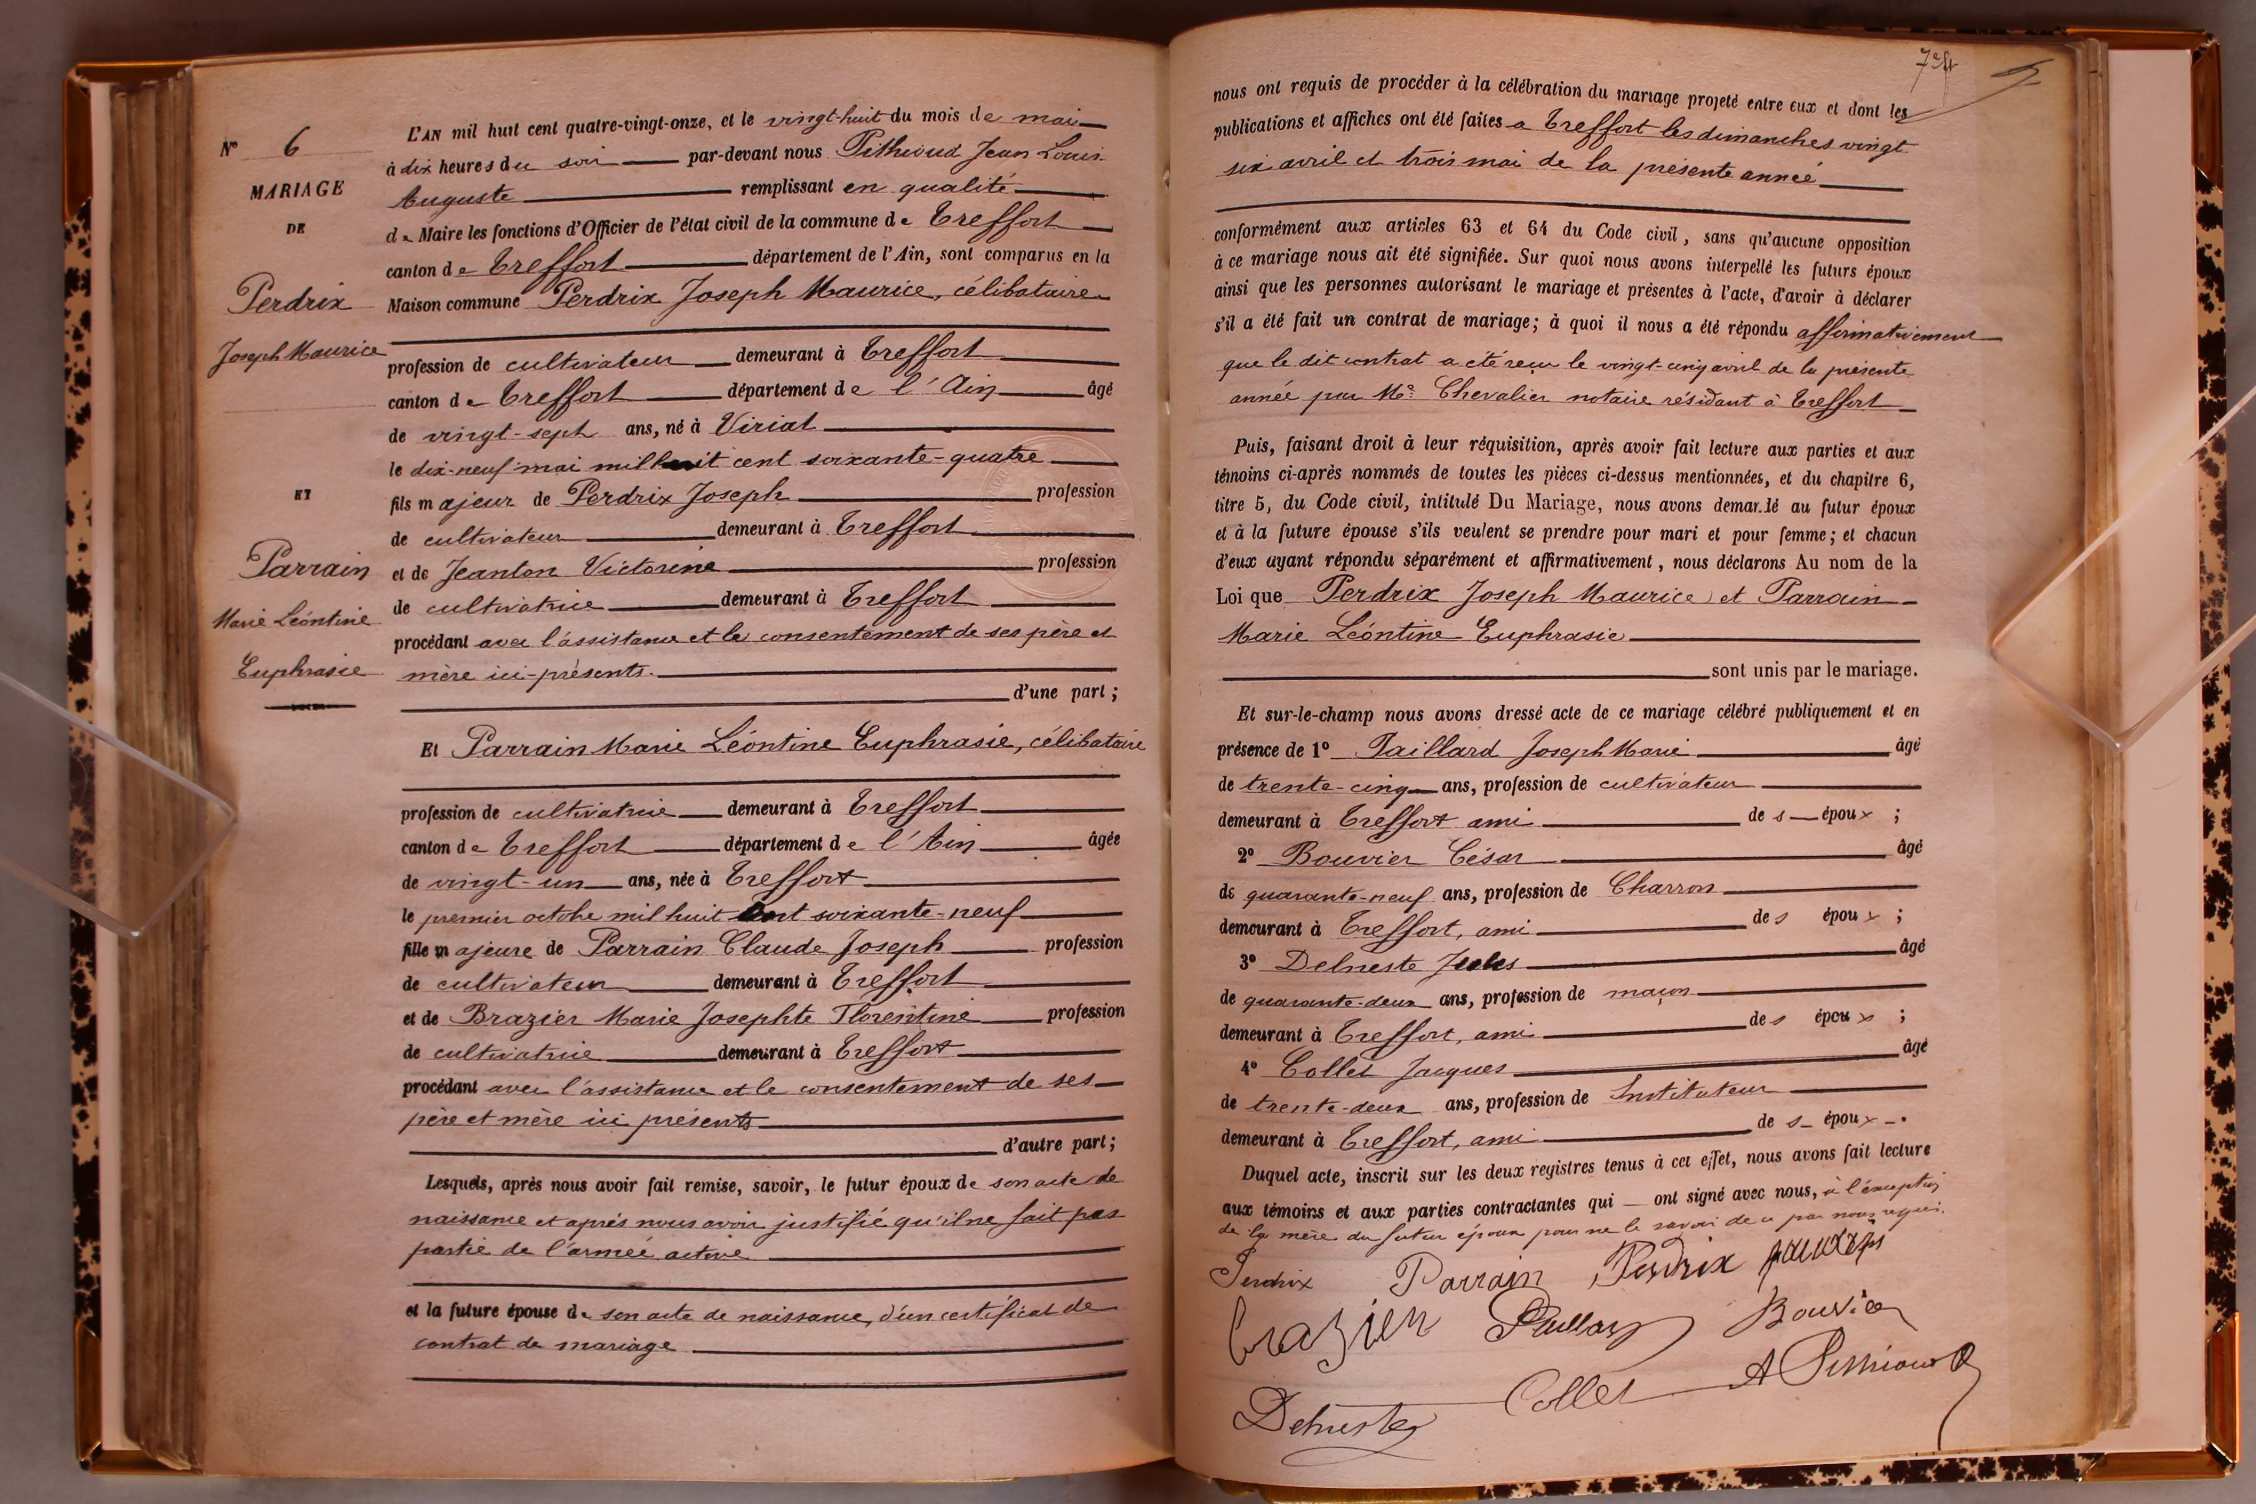 N° 6
MARIAGE
DE
Perdrix
Joseph Maurice
ET
Parrain
Marie Léontine
Euphrasie
L'AN mil huit cent quatre-vingt-onze, et le vingt-huit du mois de mai
à dix heures du soir par-devant nous Pithioud Jean Louis
Auguste remplissant en qualité
de Maire les fonctions d'Officier de l'état civil de la commune de Treffort
canton de Treffort département de l'Ain, sont comparus en la
Maison commune Perdrix Joseph Maurice, célibataire
profession de cultivateur demeurant à Treffort
canton de Treffort département de l'Ain âgé
de vingt-sept ans, né à Viriat
le dix-neuf mai mil huit cent soixante-quatre
fils majeur de Perdrix Joseph profession
de cultivateur demeurant à Treffort
et de Jeanton Victorine profession
de cultivatrice demeurant à Treffort
procédant avec l'assistance et le consentement de ses père et
mère ici-présents.
d'une part ;
Et Parrain Marie Léontine Euphrasie, célibataire
profession de cultivatrice demeurant à Treffort
canton de Treffort département de l'Ain âgée
de vingt-un ans, née à Treffort
le premier octobre mil huit cent soixante-neuf
fille majeure de Parrain Claude Joseph profession
de cultivateur demeurant à Treffort
et de Brazier Marie Josephte Florentine profession
de cultivatrice demeurant à Treffort
procédant avec l'assistance et le consentement de ses
père et mère ici présents
d'autre part ;
Lesquels, après nous avoir fait remise, savoir, le futur époux de son acte de
naissance et après nous avoir justifié qu'il ne fait pas
partie de l'armée active
et la future épouse de son acte de naissance, d'un certificat de
contrat de mariage
nous ont requis de procéder à la célébration du mariage projeté entre eux et dont les
publications et affiches ont été faites a Treffort les dimanches vingt
six avril et trois mai de la présente année
conformément aux articles 63 et 64 du Code civil, sans qu'aucune opposition
à ce mariage nous ait été signifiée. Sur quoi nous avons interpellé les futurs époux
ainsi que les personnes autorisant le mariage et présentes à l'acte, d'avoir à déclarer
s'il a été fait un contrat de mariage ; à quoi il nous a été répondu affirmativement
que le dit contrat a été reçu le vingt-cinq avril de la présente
année par Me Chevalier notaire résidant à Treffort
Puis, faisant droit à leur réquisition, après avoir fait lecture aux parties et aux
témoins ci-après nommés de toutes les pièces ci-dessus mentionnées, et du chapitre 6,
titre 5, du Code civil, intitulé Du Mariage, nous avons demandé au futur époux
et à la future épouse s'ils veulent se prendre pour mari et pour femme ; et chacun
d'eux ayant répondu séparément et affirmativement, nous déclarons Au nom de la
Loi que Perdrix Joseph Maurice et Parrain
Marie Léontine Euphrasie
sont unis par le mariage.
Et sur-le-champ nous avons dressé acte de ce mariage célébré publiquement et en
présence de 1° Paillard Joseph Marie âgé
de trente-cinq ans, profession de cultivateur
demeurant à Treffort ami des époux ;
2° Bouvier César âgé
de quarante-neuf ans, profession de Charron
demeurant à Treffort, ami des époux ;
3° Delneste Jules âgé
de quarante-deux ans, profession de maçon
demeurant à Treffort, ami des époux ;
4° Collet Jacques âgé
de trente-deux ans, profession de Instituteur
demeurant à Treffort, ami des époux.
Duquel acte, inscrit sur les deux registres tenus à cet effet, nous avons fait lecture
aux témoins et aux parties contractantes qui ont signé avec nous, à l'exception
de la mère du futur époux pour ne le savoir de ce par nous requis.
Perdrix Parrain Perdrix parrain
brazier Paillard Bouvier
Delneste Collet A Pithioud